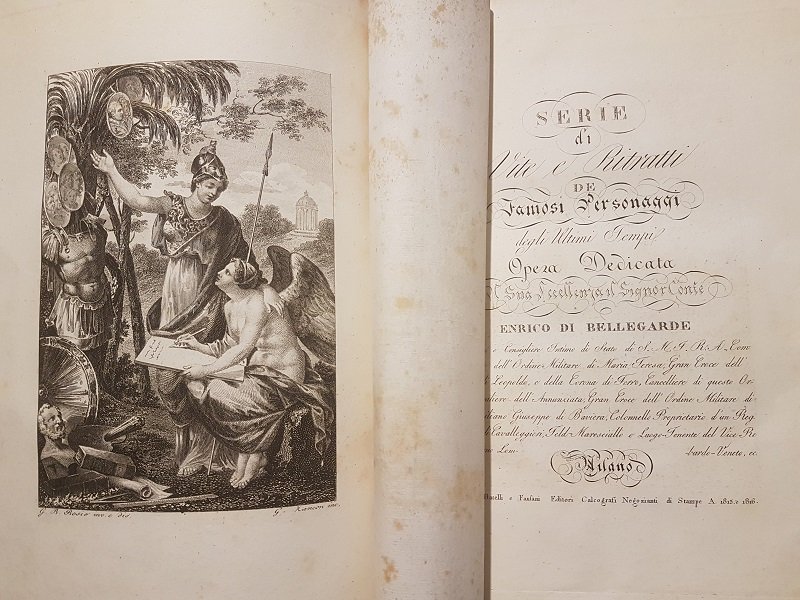 G. B. Bosio inv. e dis.
G. Zancon inc.
SERIE
di
Vite e Ritratti
DE
Famosi Personaggi
degli Ultimi Tempi
Opera Dedicata
A Sua Eccellenza il Signor Conte
ENRICO DI BELLEGARDE
e Consigliere Intimo di Stato di S. M. I. R. A. Com
dell'Ordine Militare di Maria Teresa, Gran Croce dell'
Leopoldo, e della Corona di Ferro, Cancelliere di questo Or
aliere dell'Annunciata, Gran Croce dell'Ordine Militare di
iliano Giuseppe di Baviera, Colonnello Proprietario d'un Reg
Cavalleggieri, Feld-Maresciallo e Luogo-Tenente del Vice-Re
no Lom-bardo-Veneto, ec.
Milano
Batelli e Fanfani Editori Calcografi Negozianti di Stampe A. 1815. e 1816.